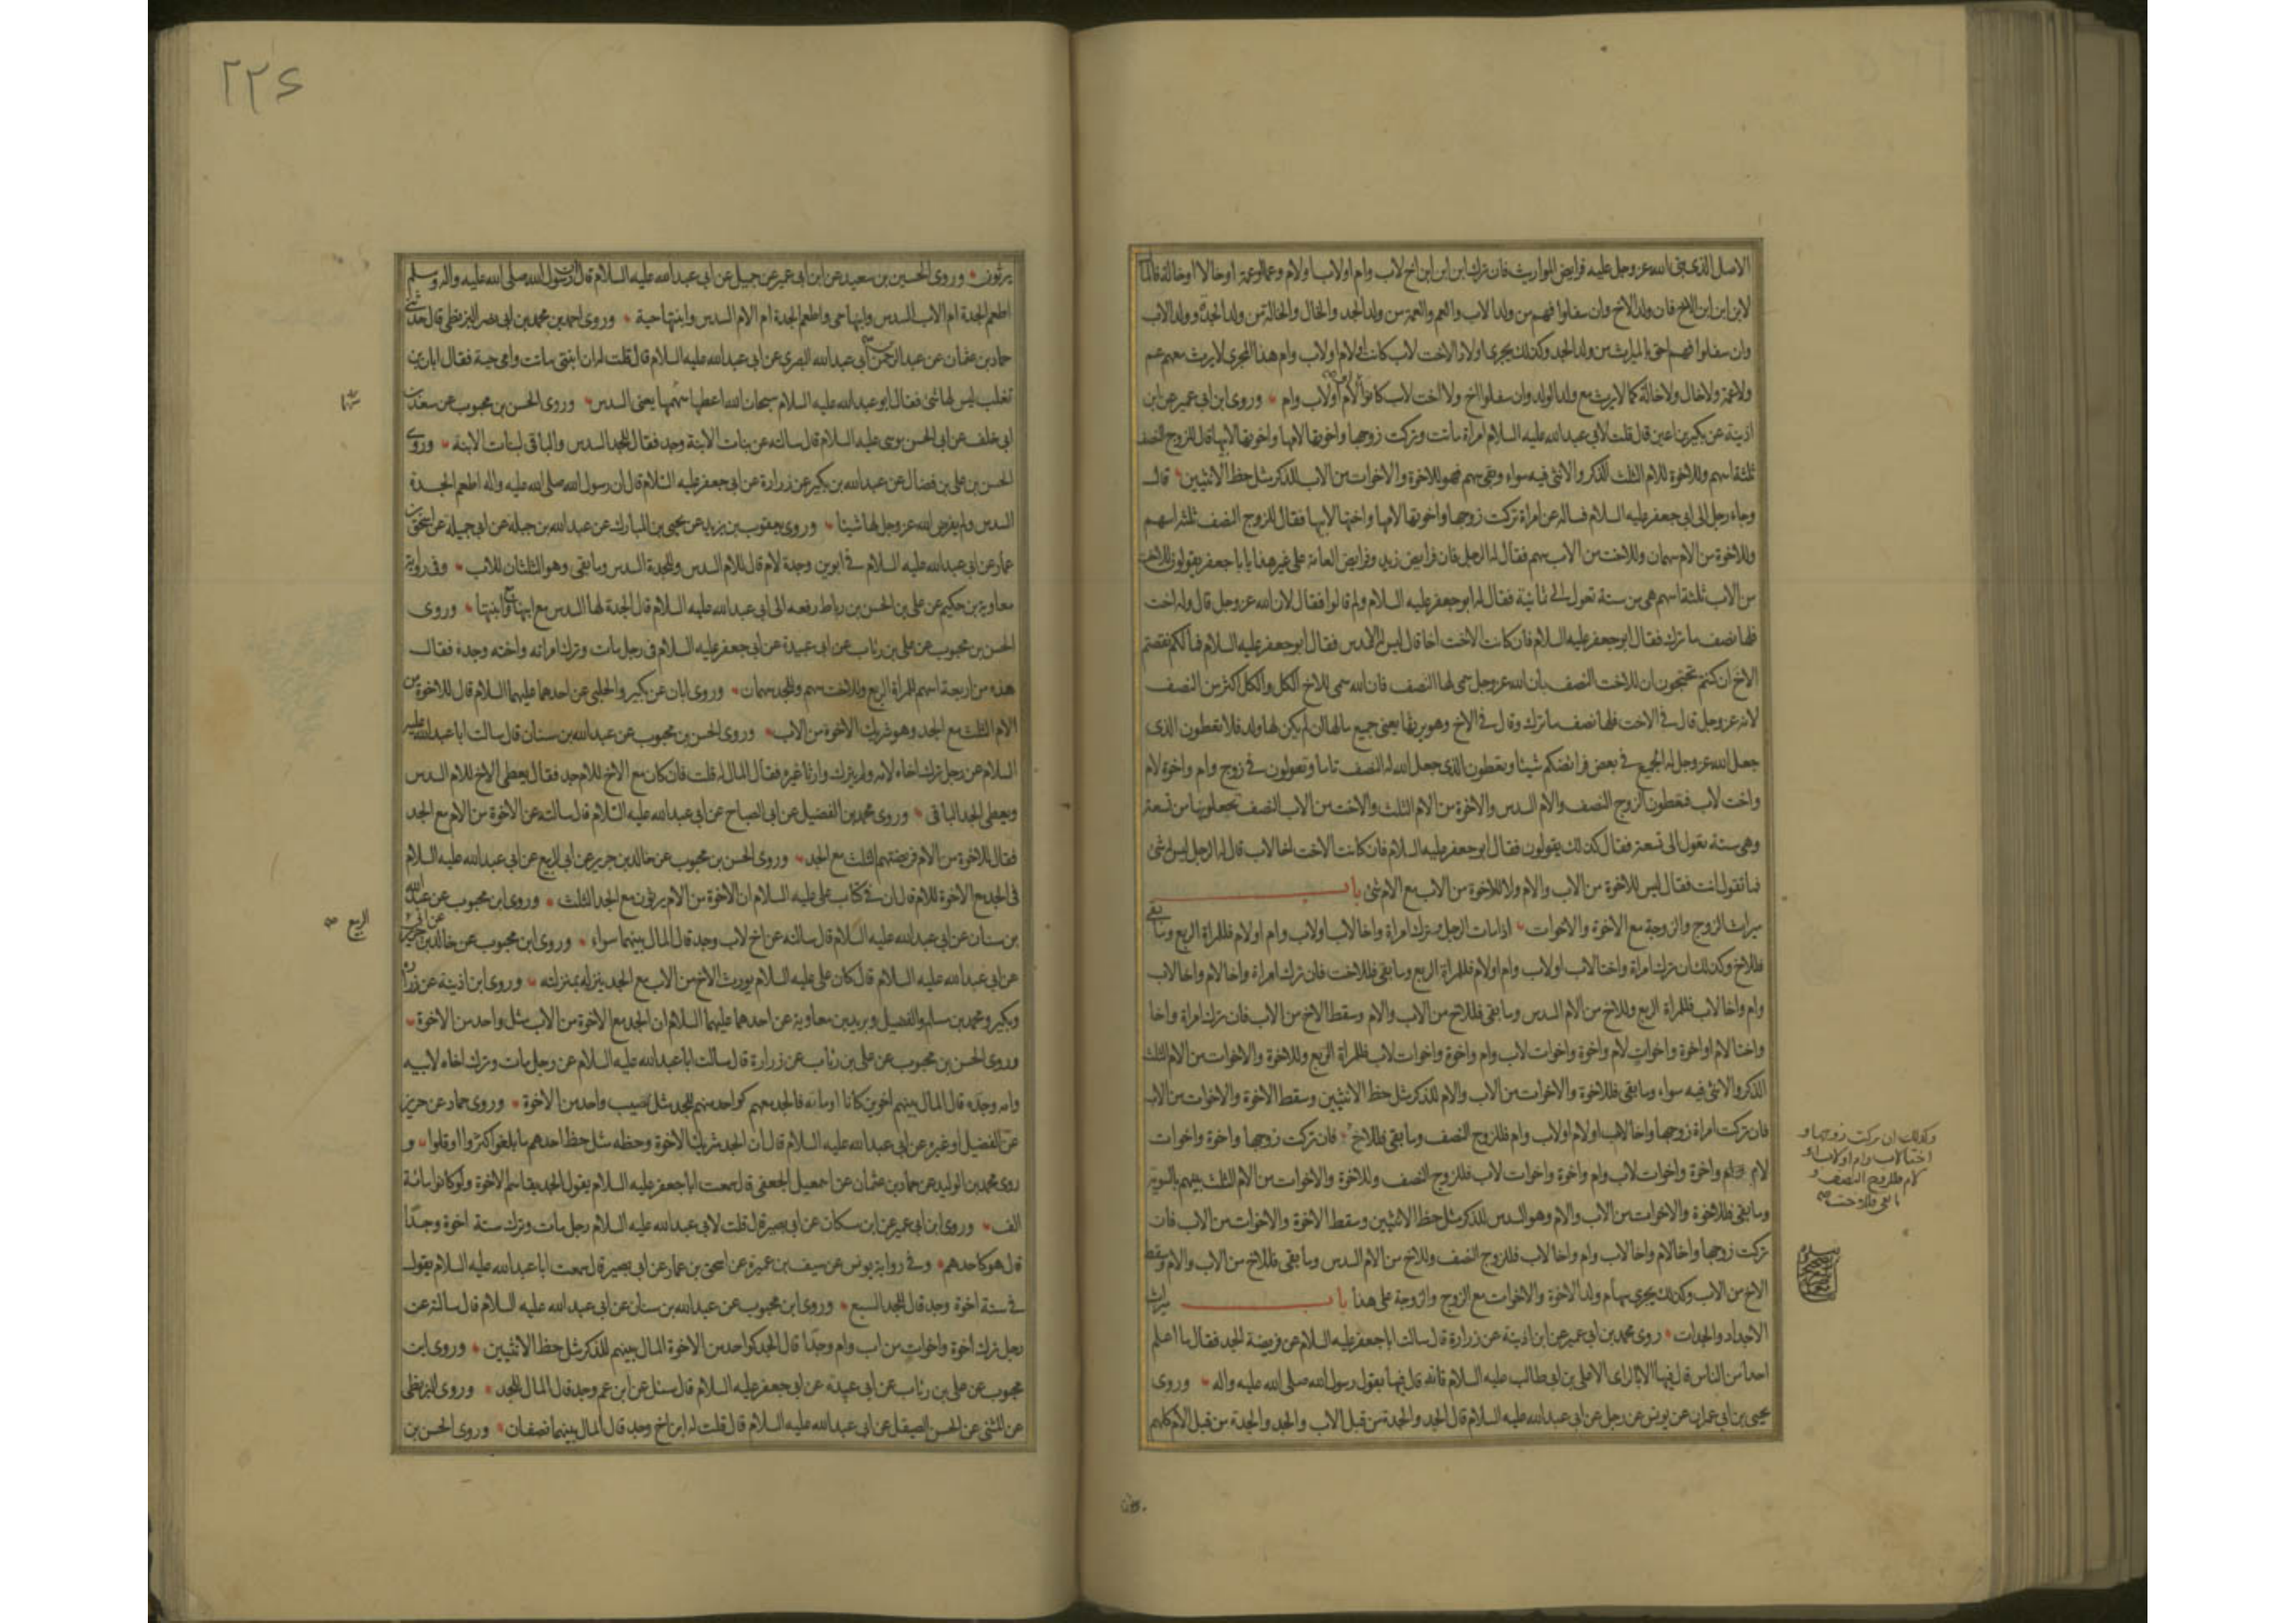 الاصل الذى بنى الله عز وجل عليه فرايض المواريث فان ترك ابن ابن ابن اخ لاب وام او لاب او لام وعما وعمة او خالا او خالة فالمال
لابن ابن ابن الاخ فان ولد الاخ وان سفلوا فهم من ولد الاب والعم والعمة من ولد الجد والخال والخالة من ولد الجد وولد الاب
وان سفلوا فهم احق بالميراث من ولد الجد وكذلك يجرى اولاد الاخت لاب كانت او لام او لاب وام هذا المجرى لا يرث معهم عم
ولا عمة ولا خال ولا خالة كما لا يرث مع ولد الولد وان سفلوا اخ ولا اخت لاب كانوا او لام او لاب وام وروى ابن ابى عمير عن ابن
اذينة عن بكير بن اعين قال قلت لابى عبد الله عليه السلام امراة ماتت وتركت زوجها واخوتها لامها واخوتها لابيها قال للزوج النصف
ثلثة اسهم وللاخوة للام الثلث الذكر والانثى فيه سواء وبقى سهم فهو للاخوة والاخوات من الاب للذكر مثل حظ الانثيين قال
وجاء رجل الى ابى جعفر عليه السلام فساله عن امراة تركت زوجها واخوتها لامها واختها لابيها فقال للزوج النصف ثلثة اسهم
وللاخوة من الام سهمان وللاخت من الاب سهم فقال له الرجل فان فرايض زيد وفرايض العامة على غير هذا يا با جعفر يقولون للاخت
من الاب ثلثة اسهم هى من ستة تعول الى ثمانية فقال له ابو جعفر عليه السلام ولم قالوا فقال لان الله عز وجل قال وله اخت
فلها نصف ما ترك فقال ابو جعفر عليه السلام فان كانت الاخت اخا قال ليس له الا السدس فقال ابو جعفر عليه السلام فما لكم نقصتم
الاخ ان كنتم تحتجون ان للاخت النصف بان الله عز وجل سمى لها النصف فان الله سمى للاخ الكل والكل اكثر من النصف
لانه عز وجل قال فى الاخت فلها نصف ما ترك وقال فى الاخ وهو يرثها يعنى جميع مالها ان لم يكن لها ولد فلا تعطون الذى
جعل الله عز وجل له الجميع فى بعض فرائضكم شيئا وتعطون الذى جعل الله له النصف تاما وتقولون فى زوج وام واخوة لام
واخت لاب فتعطون الزوج النصف والام السدس والاخوة من الام الثلث والاخت من الاب النصف تجعلونها من تسعة
وهى ستة تعول الى تسعة فقال كذلك يقولون فقال ابو جعفر عليه السلام فان كانت الاخت اخا لاب قال له الرجل ليس له شئ
فما تقول انت فقال ليس للاخوة من الاب والام ولا للاخوة من الاب مع الام شئ باب
ميراث الزوج والزوجة مع الاخوة والاخوات اذا مات الرجل وترك امراة واخا لاب او لاب وام او لام فللمراة الربع وما بقى
فللاخ وكذلك ان ترك امراة واختا لاب او لاب وام او لام فللمراة الربع وما بقى فللاخت فان ترك امراة واخا لام واخا لاب
وام واخا لاب فللمراة الربع وللاخ من الام السدس وما بقى فللاخ من الاب والام وسقط الاخ من الاب فان ترك امراة واخا
واختا لام او اخوة واخوات لام واخوة واخوات لاب وام واخوة واخوات لاب فللمراة الربع وللاخوة والاخوات من الام الثلث
الذكر والانثى فيه سواء وما بقى فللاخوة والاخوات من الاب والام للذكر مثل حظ الانثيين وسقط الاخوة والاخوات من الاب
فان تركت امراة زوجها واخا لاب او لام او لاب وام فللزوج النصف وما بقى فللاخ فان تركت زوجها واخوة واخوات
لام واخوة واخوات لاب وام واخوة واخوات لاب فللزوج النصف وللاخوة والاخوات من الام الثلث بينهم بالسوية
وما بقى فللاخوة والاخوات من الاب والام وهو السدس للذكر مثل حظ الانثيين وسقط الاخوة والاخوات من الاب فان
تركت زوجها واخا لام واخا لاب وام واخا لاب فللزوج النصف وللاخ من الام السدس وما بقى فللاخ من الاب والام وسقط
الاخ من الاب وكذلك يجرى سهام ولد الاخوة والاخوات مع الزوج والزوجة على هذا باب ميراث
الاجداد والجدات روى محمد بن ابى عمير عن ابن اذينة عن زرارة قال سالت ابا جعفر عليه السلام عن فريضة الجد فقال ما اعلم
احدا من الناس قال فيها الا بالراى الا على بن ابى طالب عليه السلام فانه قال فيها بقول رسول الله صلى الله عليه واله وروى
يحيى بن ابى عمران عن يونس عن رجل عن ابى عبد الله عليه السلام قال الجد والجدة من قبل الاب والجد والجدة من قبل الام كلهم
وكذلك ان تركت زوجها و
اختا لاب وام او لاب او
لام فللزوج النصف و
ما بقى فللاخت صح
يرثون
٢٢٤
يرثون وروى الحسين بن سعيد عن ابن ابى عمير عن جميل عن ابى عبد الله عليه السلام قال ان رسول الله صلى الله عليه واله وسلم
اطعم الجدة ام الاب السدس وابنها حى واطعم الجدة ام الام السدس وابنتها حية وروى احمد بن محمد بن ابى نصر البزنطى قال حدثنى
حماد بن عثمان عن عبد الرحمن بن ابى عبد الله البصرى عن ابى عبد الله عليه السلام قال قلت له ان ابنتى ماتت وامى حية فقال ابان بن
تغلب ليس لها شئ فقال ابو عبد الله عليه السلام سبحان الله اعطها سهمها يعنى السدس وروى الحسن بن محبوب عن سعد بن
ابى خلف عن ابى الحسن موسى عليه السلام قال سالته عن بنات الابنة وجد فقال للجد السدس والباقى لبنات الابنة وروى
الحسن بن على بن فضال عن عبد الله بن بكير عن زرارة عن ابى جعفر عليه السلام قال ان رسول الله صلى الله عليه واله اطعم الجدة
السدس ولم يفرض الله عز وجل لها شيئا وروى يعقوب بن يزيد عن يحيى بن المبارك عن عبد الله بن جبلة عن ابى جميلة عن اسحق بن
عمار عن ابى عبد الله عليه السلام فى ابوين وجدة لام قال للام السدس وللجدة السدس وما بقى وهو الثلثان للاب وفى رواية
معاوية بن حكيم عن على بن الحسن بن رباط رفعه الى ابى عبد الله عليه السلام قال الجدة لها السدس مع ابنها ومع ابنتها وروى
الحسن بن محبوب عن على بن رئاب عن ابى عبيدة عن ابى جعفر عليه السلام فى رجل مات وترك امراته واخته وجده فقال
هذه من اربعة اسهم للمراة الربع وللاخت سهم وللجد سهمان وروى ابان عن بكير والحلبى عن احدهما عليهما السلام قال للاخوة من
الام الثلث مع الجد وهو شريك الاخوة من الاب وروى الحسن بن محبوب عن عبد الله بن سنان قال سالت ابا عبد الله عليه
السلام عن رجل ترك اخاه لامه ولم يترك وارثا غيره فقال المال له قلت فان كان مع الاخ للام جد فقال يعطى الاخ للام السدس
ويعطى الجد الباقى وروى محمد بن الفضيل عن ابى الصباح عن ابى عبد الله عليه السلام قال سالته عن الاخوة من الام مع الجد
فقال للاخوة من الام فريضتهم الثلث مع الجد وروى الحسن بن محبوب عن خالد بن جرير عن ابى الربيع عن ابى عبد الله عليه السلام
فى الجد مع الاخوة للام قال ان فى كتاب على عليه السلام ان الاخوة من الام يرثون مع الجد الثلث وروى ابن محبوب عن عبد الله
بن سنان عن ابى عبد الله عليه السلام قال سالته عن اخ لاب وجد قال المال بينهما سواء وروى ابن محبوب عن خالد بن جرير عن ابى
الربيع صح
عن ابى عبد الله عليه السلام قال كان على عليه السلام يورث الاخ من الاب مع الجد ينزله بمنزلته وروى ابن اذينة عن زرارة
وبكير ومحمد بن مسلم والفضيل وبريد بن معاوية عن احدهما عليهما السلام ان الجد مع الاخوة من الاب مثل واحد من الاخوة
وروى الحسن بن محبوب عن على بن رئاب عن زرارة قال سالت ابا عبد الله عليه السلام عن رجل مات وترك اخاه لابيه
وامه وجده قال المال بينهم اخوين كانا او مائة فالجد معهم كواحد منهم للجد مثل نصيب واحد من الاخوة وروى حماد عن حريز
عن الفضيل او غيره عن ابى عبد الله عليه السلام قال ان الجد شريك الاخوة وحظه مثل حظ احدهم ما بلغوا كثروا او قلوا و
روى محمد بن الوليد عن حماد بن عثمان عن اسمعيل الجعفى قال سمعت ابا جعفر عليه السلام يقول الجد يقاسم الاخوة ولو كانوا مائة
الف وروى ابن ابى عمير عن ابن مسكان عن ابى بصير قال قلت لابى عبد الله عليه السلام رجل مات وترك ستة اخوة وجدا
قال هو كاحدهم وفى رواية يونس عن سيف بن عميرة عن اسحق بن عمار عن ابى بصير قال سمعت ابا عبد الله عليه السلام يقول
فى ستة اخوة وجد قال للجد السبع وروى ابن محبوب عن عبد الله بن سنان عن ابى عبد الله عليه السلام قال سالته عن
رجل ترك اخوة واخوات من اب وام وجدا قال الجد كواحد من الاخوة المال بينهم للذكر مثل حظ الانثيين وروى ابن
محبوب عن على بن رئاب عن ابى عبيدة عن ابى جعفر عليه السلام قال سئل عن ابن عم وجد قال المال للجد وروى البزنطى
عن المثنى عن الحسن الصيقل عن ابى عبد الله عليه السلام قال قلت له ابن اخ وجد قال المال بينهما نصفان وروى الحسن بن